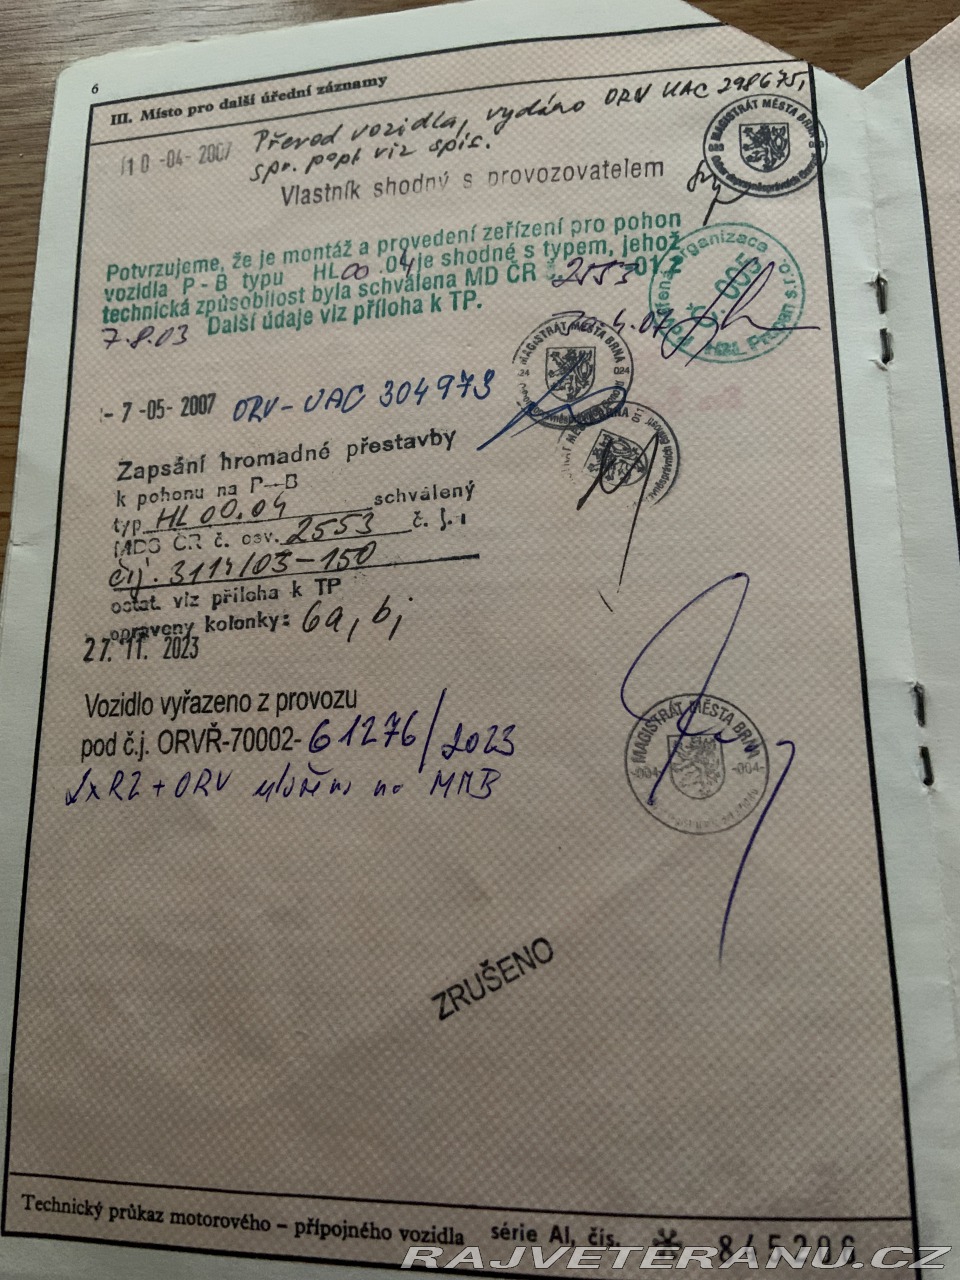 6
III. Místo pro další úřední záznamy
10-04-2007 Převod vozidla, vydáno ORV UAC 298675,
spr. popl viz spis.
Vlastník shodný s provozovatelem
MAGISTRÁT MĚSTA BRNA
Potvrzujeme, že je montáž a provedení zeřízení pro pohon
vozidla P - B typu HL 00 .04 je shodné s typem, jehož
technická způsobilost byla schválena MD ČR č. 2553
7.8.03 Další údaje viz příloha k TP.
005
MAGISTRÁT MĚSTA BRNA
024
- 7 -05- 2007 ORV - UAC 304973
Zapsání hromadné přestavby
k pohonu na P—B
typ HL 00.04 schválený
MDS ČR č. osv. 2553 č. j.
čj. 3114/03-150
ostat. viz příloha k TP
opraveny kolonky: 6a, b,
27. 11. 2023
Vozidlo vyřazeno z provozu
pod č.j. ORVŘ-70002- 61276/2023
2x RZ + ORV uloženo na MMB
MAGISTRÁT MĚSTA BRNA
-004- -004-
ZRUŠENO
Technický průkaz motorového – přípojného vozidla série AI, čís. 845206
RAJVETERANU.CZ